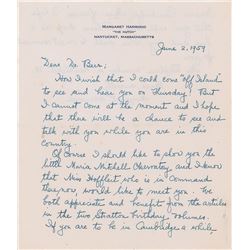 MARGARET HARWOOD
"THE HUTCH"
NANTUCKET, MASSACHUSETTS
June 2, 1959
Dear Dr. Beer:
How I wish that I could come "off Island"
to see and hear you on Thursday! But I
cannot come at the moment and I hope
that there will be a chance to see and
talk with you while you are in this
country.
Of course I should like to show you the
little Maria Mitchell Observatory, and I know
that Miss Hoffleit who is in command
there now, would like to meet you. We
both appreciate and benefit from the articles
in the two Stratton birthday volumes.
If you are to be in Cambridge a while,